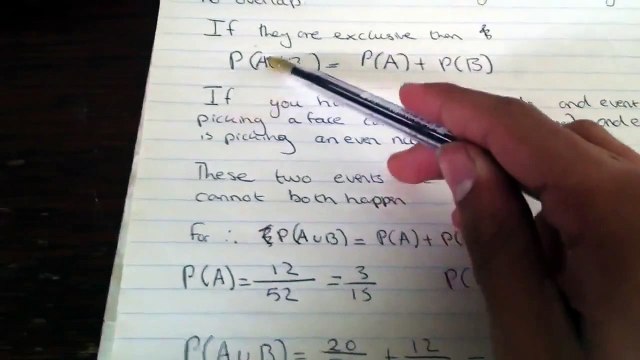 to overlap
If they are exclusive then
P(A∪B) = P(A) + P(B)
If you and event
picking a face and e
is picking an even
These two events
cannot both happen
for ∴ P(A∪B) = P(A) + P(
P(A) = 12/52 = 3/15 P(
P(A∪B) = 20 + 12